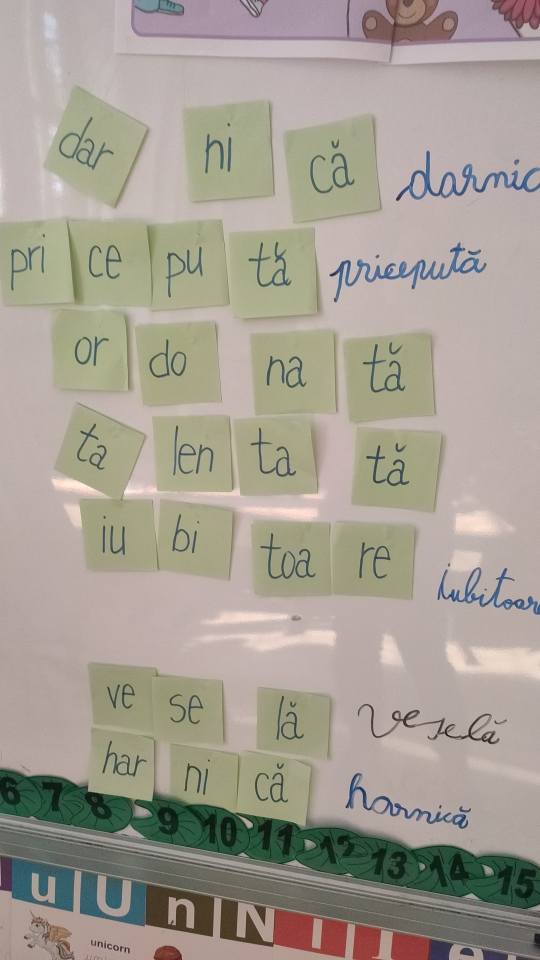 dar ni că darnic
pri ce pu tă pricepută
or do na tă
ta len ta tă
iu bi toa re iubitoare
ve se lă veselă
har ni că harnică
6 7 8 9 10 11 12 13 14 15
u U n N I i e
unicorn